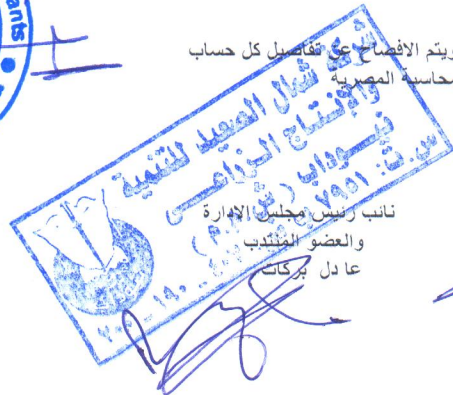 ants
ويتم الافصاح عن تفاصيل كل حساب
محاسبة المصرية
شركة شمال الصعيد للتنمية
والإنتاج الزراعى
نيوداب (ش.م.م)
س.ت: ٧٩٥١
نائب رئيس مجلس الادارة
والعضو المنتدب
عادل بركات